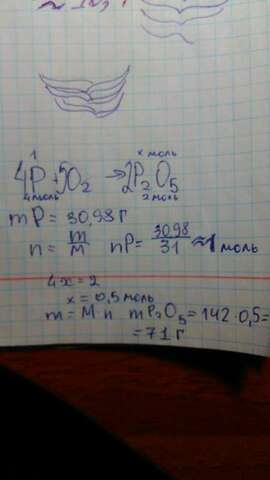 1 x моль
4P+5O₂ → 2P₂O₅
4 моль 2 моль
mP = 30,98 г
n = m/M nP = 30,98/31 ≈ 1 моль
4x = 2
x = 0,5 моль
m = M·n mP₂O₅ = 142·0,5=
= 71 г